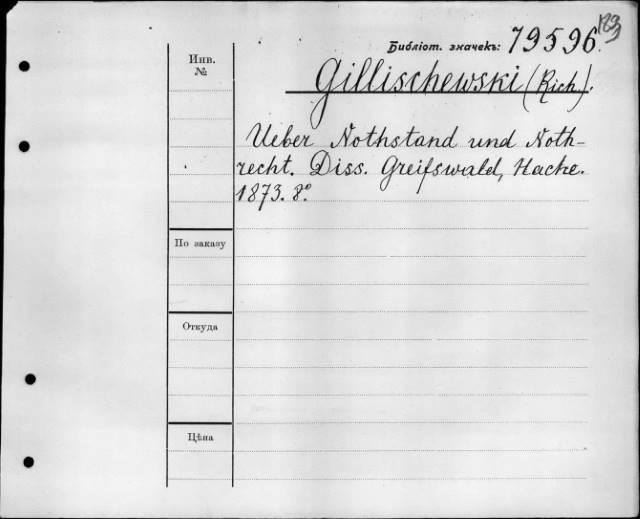 183
Библіот. значекъ: 79596.
Инв.
№
Gillischewski (Rich).
Ueber Nothstand und Noth-
recht. Diss. Greifswald, Hache.
1873. 8°.
По заказу
Откуда
Цѣна